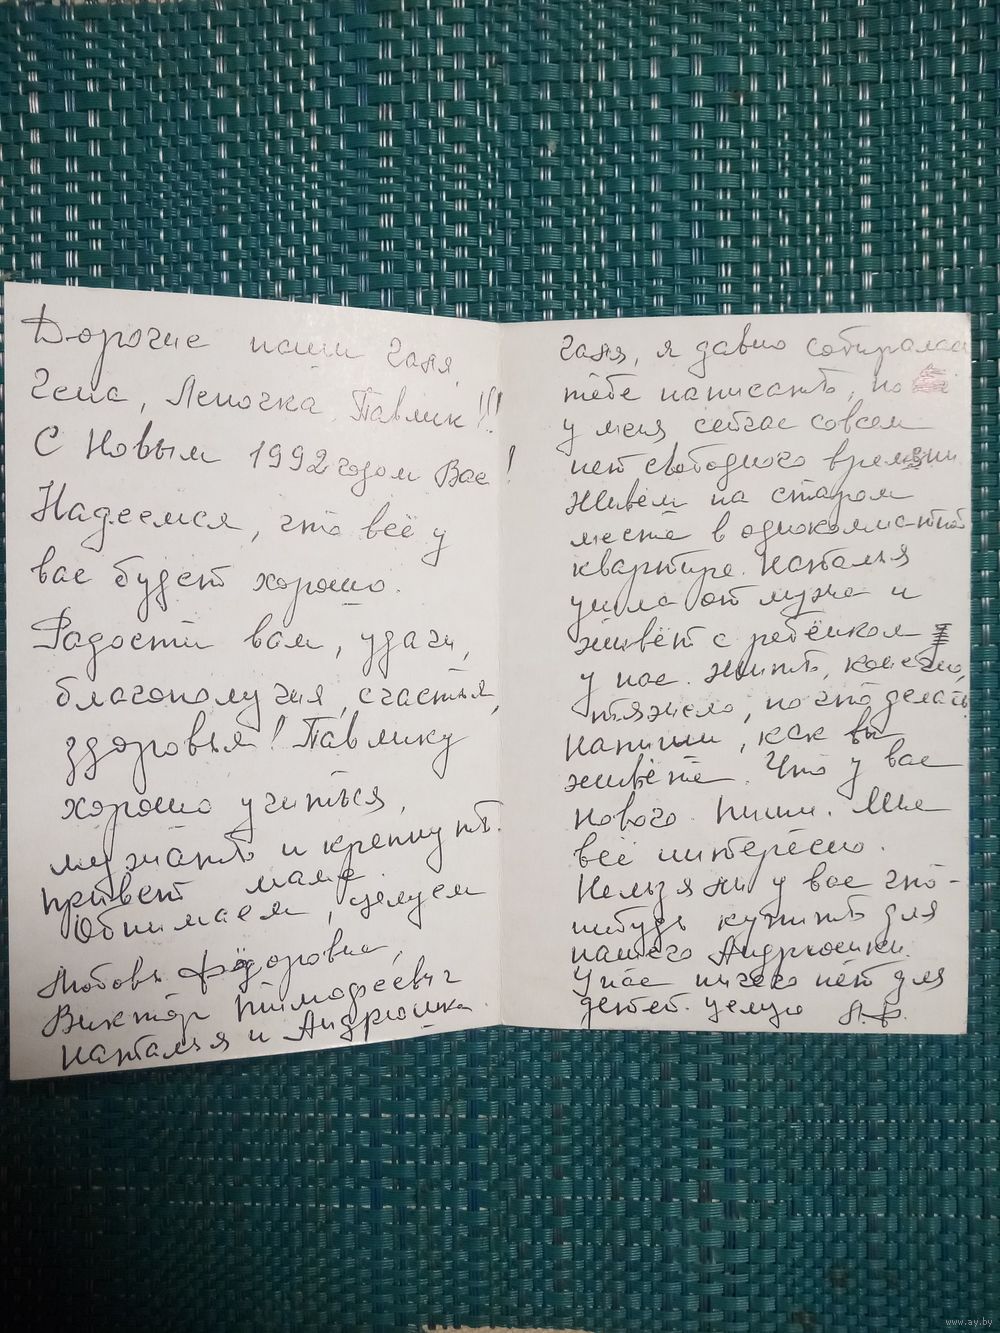 Дорогие наши Галя,
Гена, Леночка, Павлик!!!
С Новым 1992 годом Вас!
Надеемся, что всё у
вас будет хорошо.
Радости вам, удачи,
благополучия, счастья,
здоровья! Павлику
хорошо учиться,
мужать и крепнуть.
Привет маме.
Обнимаем, целуем
Любовь Фёдоровна,
Виктор Тимофеевич
Наталья и Андрюшка.
Галя, я давно собиралась
тебе написать, но
у меня сейчас совсем
нет свободного времени
Живём на старом
месте в однокомнатной
квартире. Наталья
ушла от мужа и
живёт с ребёнком
у нас. Жить, конечно,
тяжело, но что делать.
Напиши, как вы
живёте. Что у вас
нового. Пиши. Мне
всё интересно.
Нельзя ли у вас что-
нибудь купить для
нашего Андрюшки.
У нас ничего нет для
детей. Целую Л.Ф.
www.ay.by